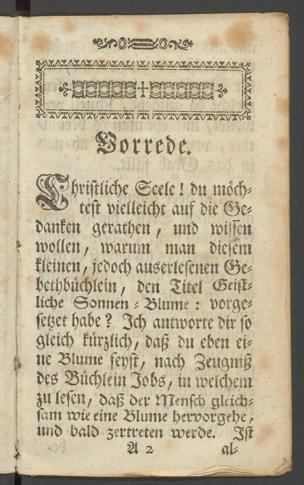 Vorrede.
Christliche Seele! du möch-
test vielleicht auf die Ge-
danken gerathen, und wissen
wollen, warum man diesem
kleinen, jedoch auserlesenen Ge-
bethbüchlein, den Titel Geist-
liche Sonnen-Blume: vorge-
setzet habe? Ich antworte dir so
gleich kürzlich, daß du eben ei-
ne Blume seyst, nach Zeugniß
des Büchlein Jobs, in welchem
zu lesen, daß der Mensch gleich-
sam wie eine Blume hervorgehe,
und bald zertreten werde. Ist
A 2 al-